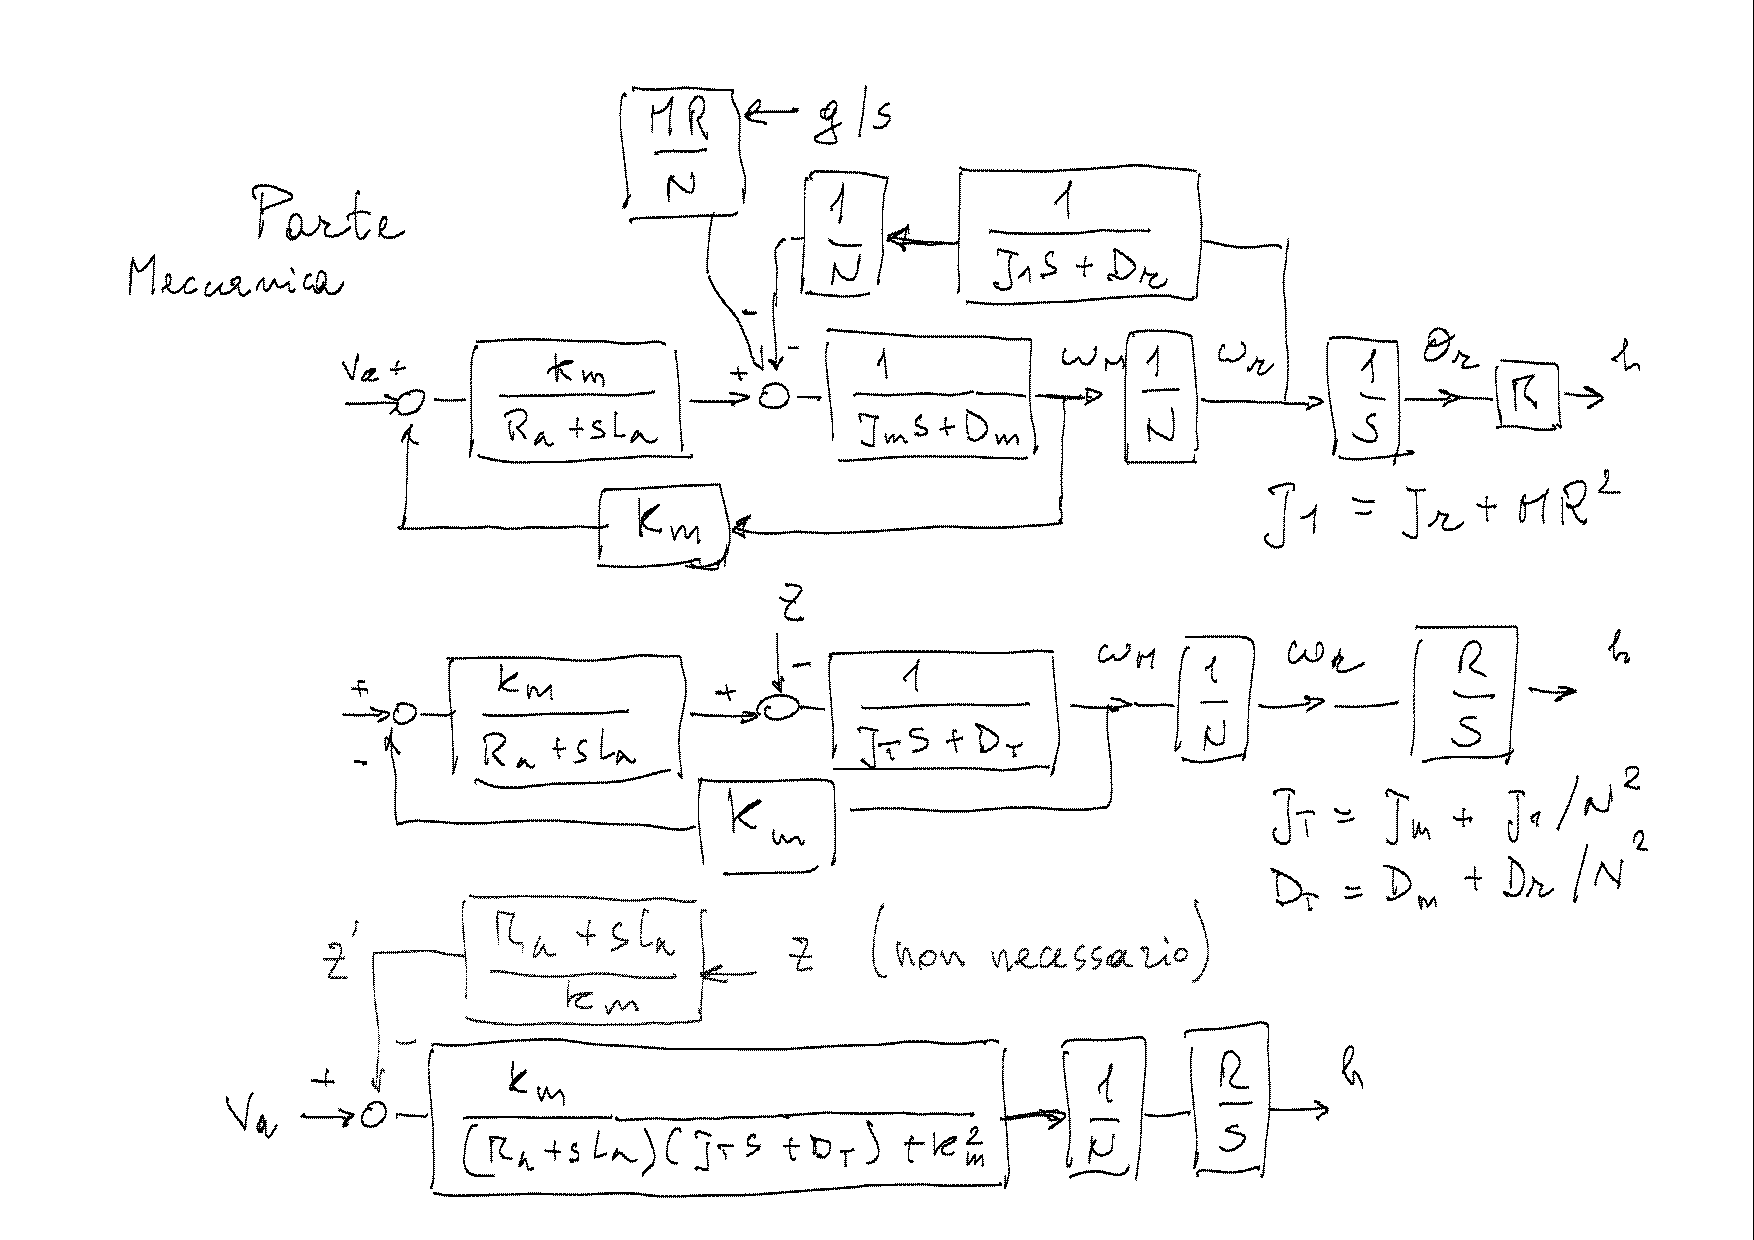 MR
N
← g/s
Parte
Meccanica
1
N
1
J1s + Dr
Va +
km
Ra + sLa
+
-
-
1
Jms + Dm
ωM
1
N
ωr
1
s
θr
R
h
km
J1 = Jr + MR²
z
+
-
km
Ra + sLa
+
-
1
JTs + DT
ωM
1
N
ωr
R
s
h
km
JT = Jm + J1/N²
DT = Dm + Dr/N²
z'
Ra + sLa
km
z (non necessario)
-
+
Va
km
(Ra + sLa)(JTs + DT) + km²
1
N
R
s
h